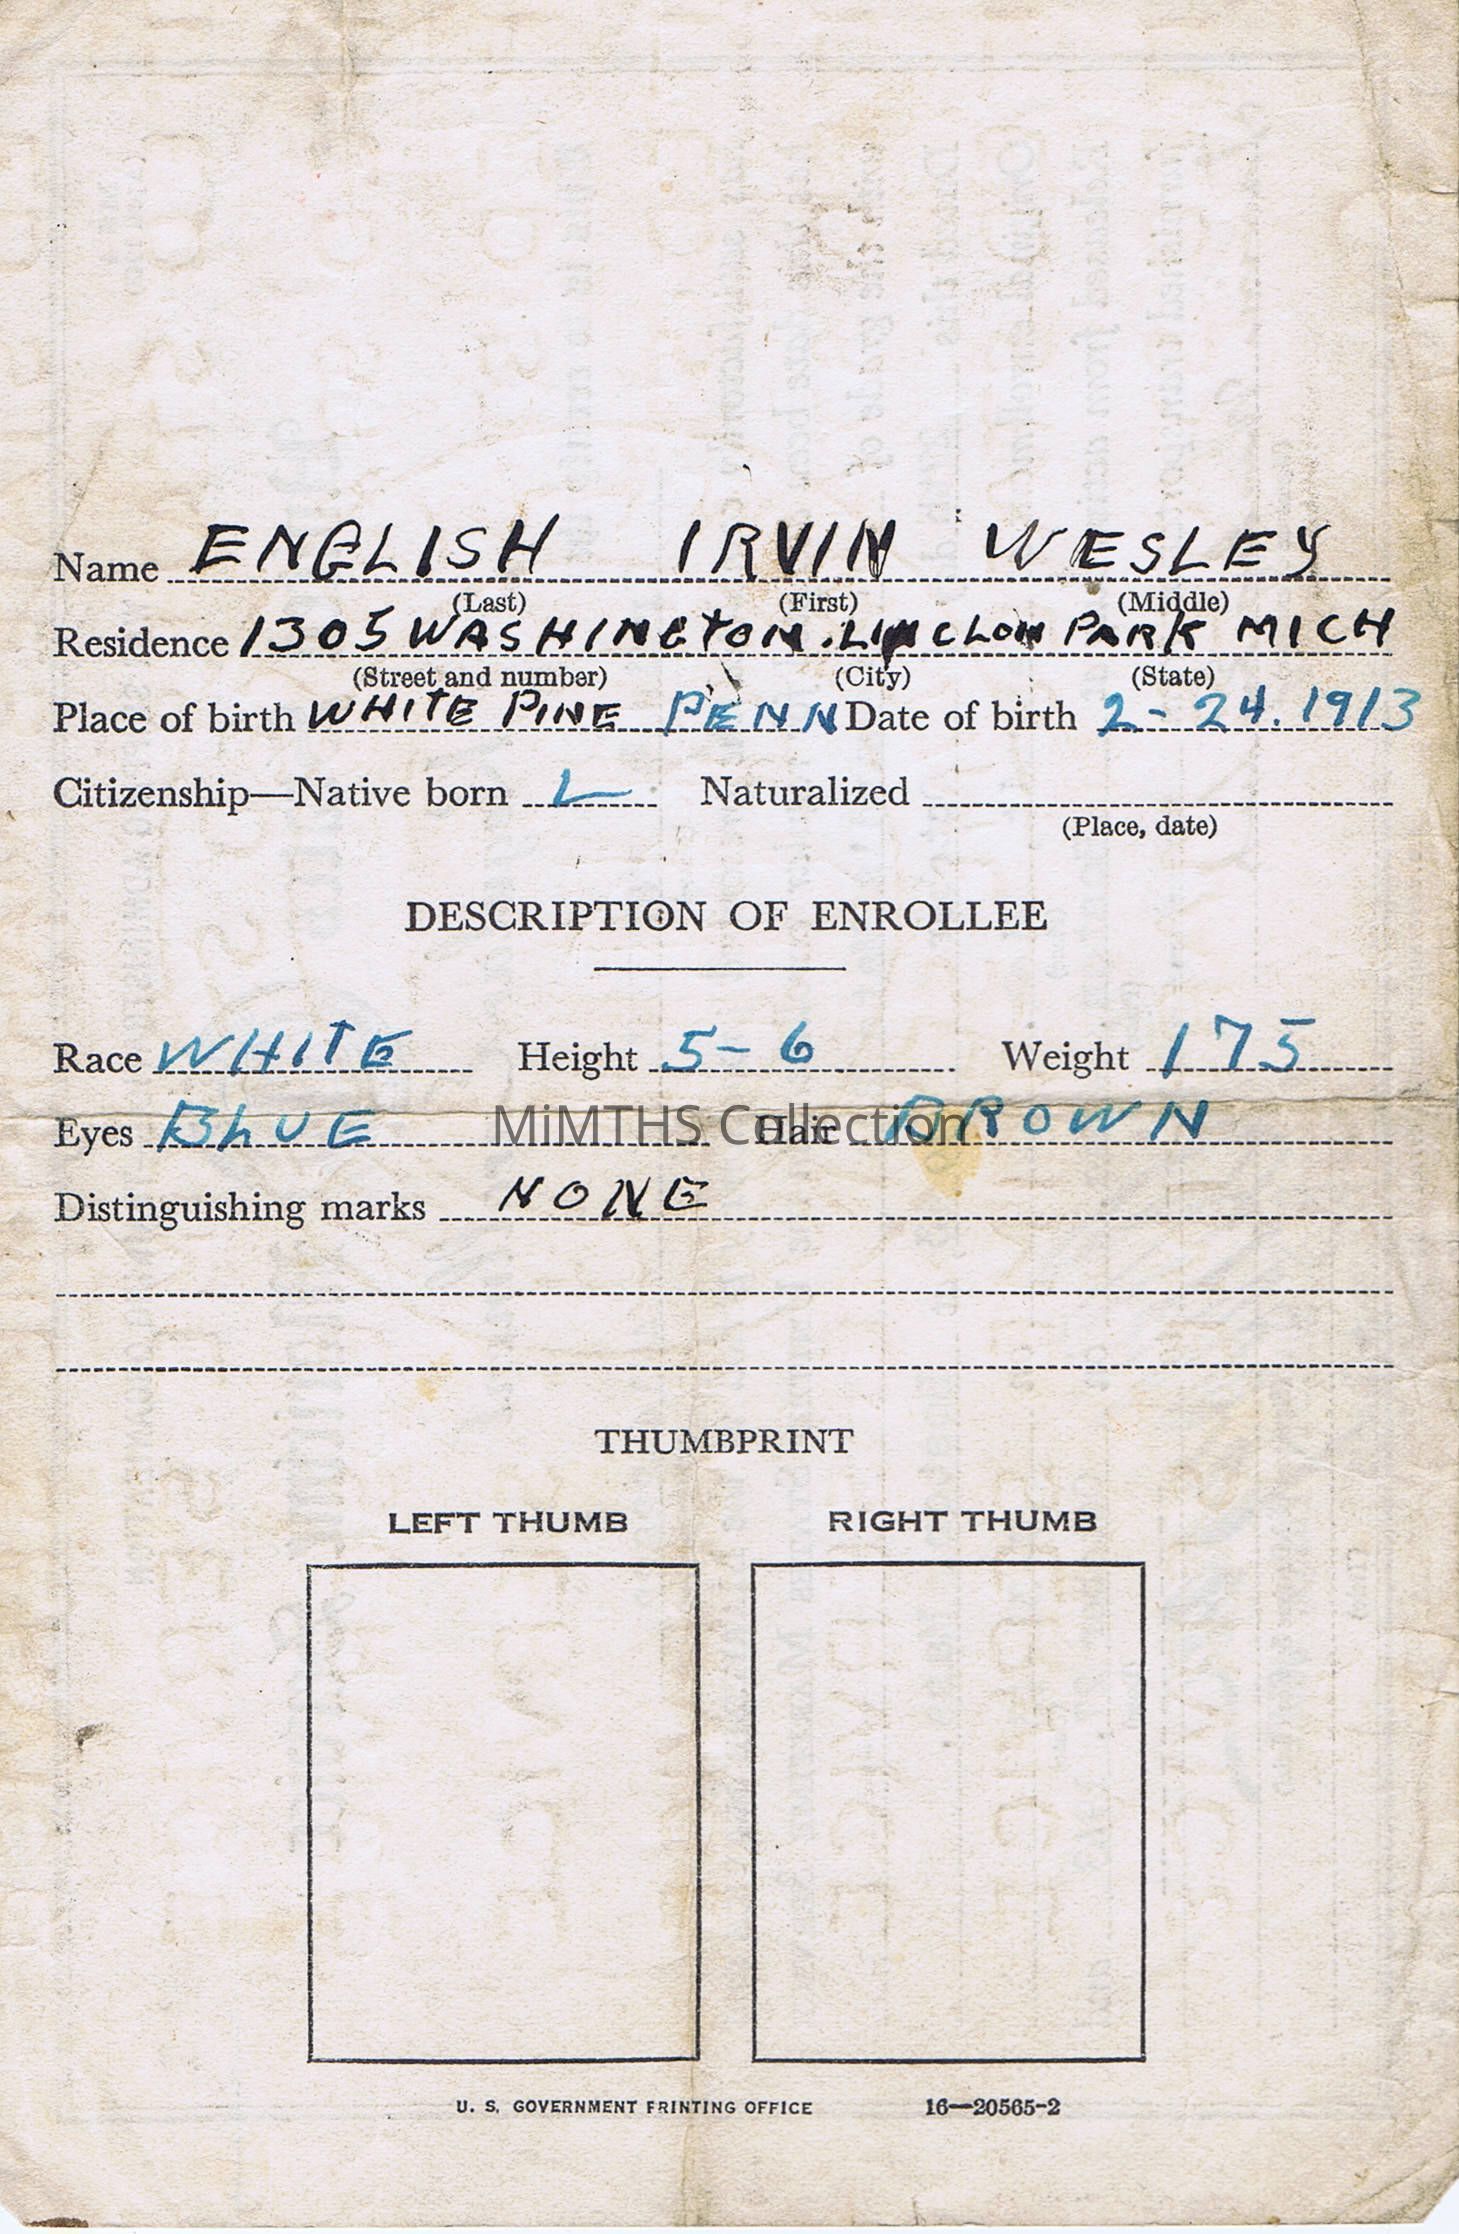 Name ENGLISH IRVIN WESLEY
(Last) (First) (Middle)
Residence 1305 WASHINGTON. LINCLON PARK MICH
(Street and number) (City) (State)
Place of birth WHITE PINE PENN Date of birth 2-24.1913
Citizenship—Native born Naturalized
(Place, date)
DESCRIPTION OF ENROLLEE
Race WHITE Height 5-6 Weight 175
Eyes BLUE Hair BROWN
MiMTHS Collection
Distinguishing marks NONE
THUMBPRINT
LEFT THUMB RIGHT THUMB
U. S. GOVERNMENT PRINTING OFFICE 16—20565-2